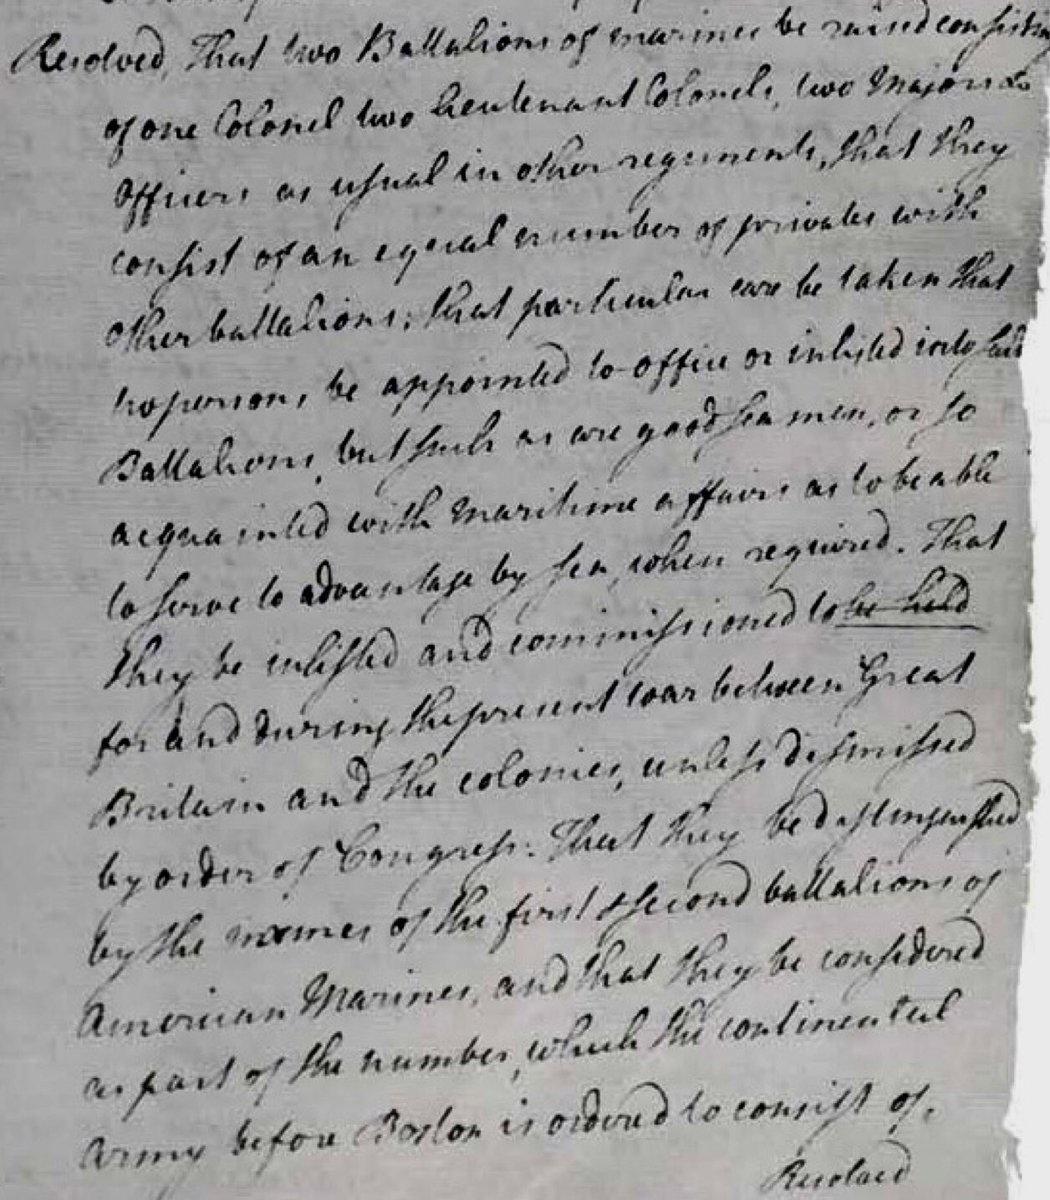 Resolved, That two Battalions of marines be raised consisting
of one Colonel two lieutenant Colonels, two Majors &c
Officers as usual in other regiments, that they
consist of an equal number of privates with
other battalions; that particular care be taken that
no persons be appointed to office or inlisted into said
Battalions, but such as are good seamen, or so
acquainted with maritime affairs as to be able
to serve to advantage by sea, when required. That
they be inlisted and commissioned to be held
for and during the present war between Great
Britain and the colonies, unless dismissed
by order of Congress. That they be distinguished
by the names of the first & second battalions of
American Marines, and that they be considered
as part of the number, which the continental
Army before Boston is ordered to consist of.
Resolved